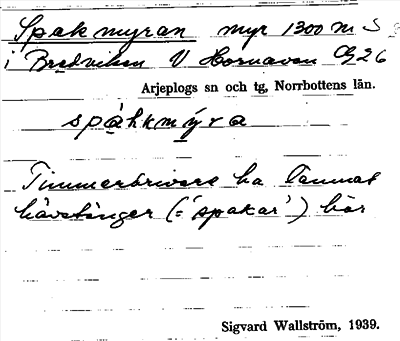 Spakmyran myr 1300 m S
i Bredviken V Hornavan G26
Arjeplogs sn och tg, Norrbottens län.
spàhkmýra
Timmerdrivare ha lämnat
hävstänger (= 'spakar') här
Sigvard Wallström, 1939.